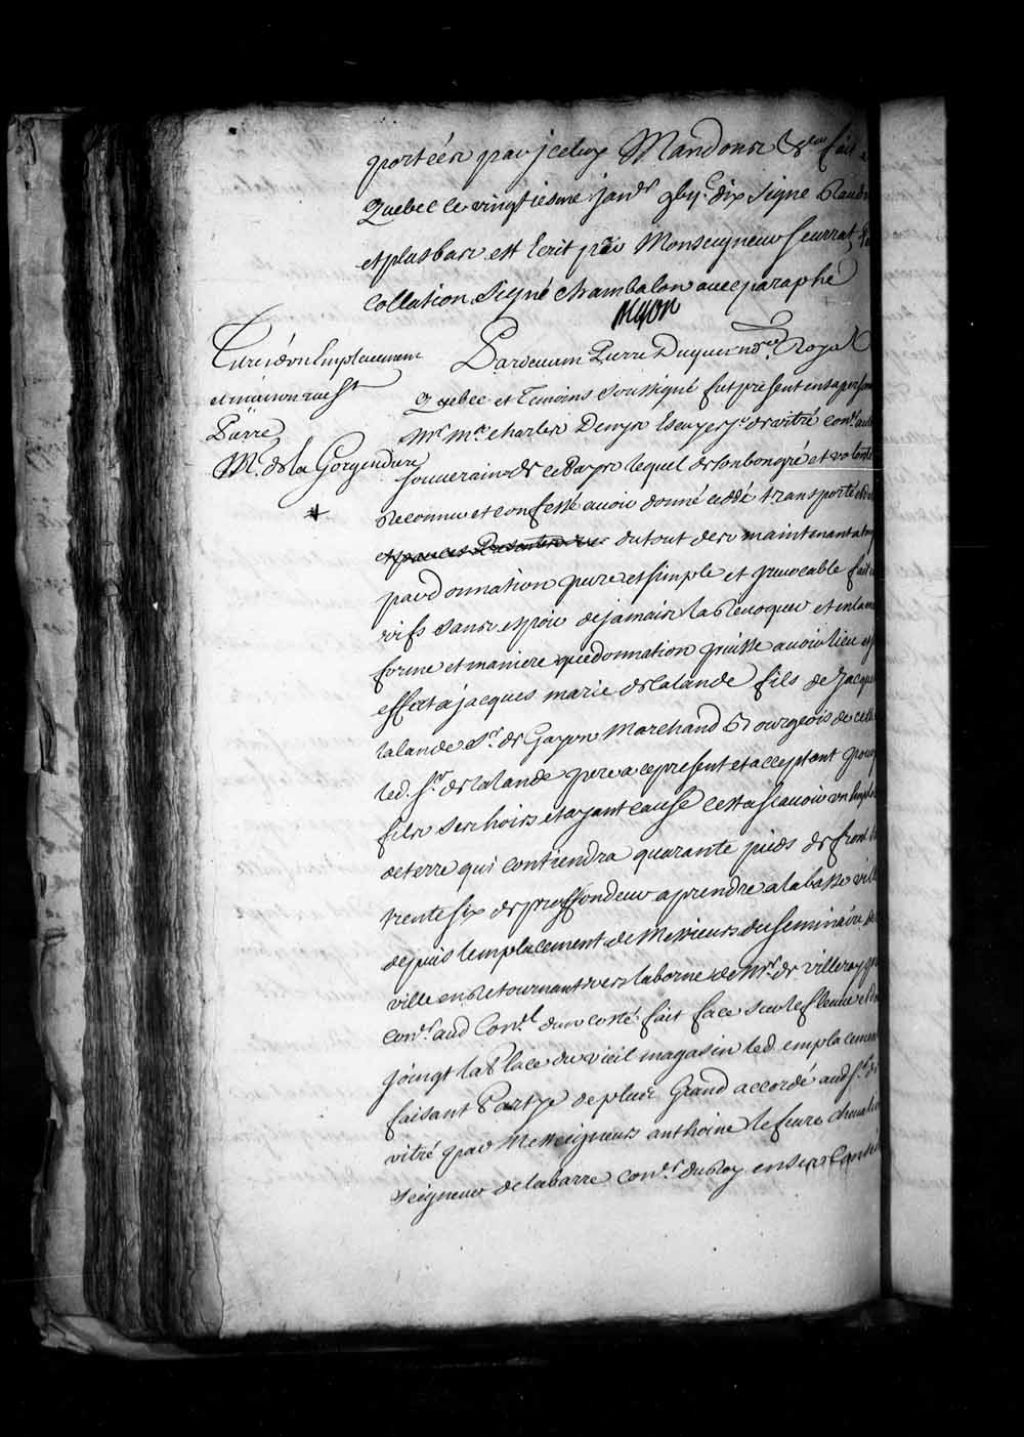 portées par jceluy Mandons &c fait a
Quebec le vingtiesme janr gbij.c dix signe Raudo
et plus bas est Ecrit par Monseigneur seurrat
Collation signé chambalon avec paraphe
Titre d'un Emplacement
et maison rue St
Pierre
Mr. de la Gorgendiere
Pardevant Pierre Duquet no.re Royal
Quebec et Temoins soussigné fut present en sa person
Mr Me charles Denys Escuyer sr. de vitré conr. au
souverain de ce Pays lequel de son bon gré et volonté
Reconnu et confessé avoir donné cedé transporté
et par ces Presentes du tout des maintenant a touj
par donnation pure et simple et jrrevocable fait
vifs sans espoir de jamais la Revoquer et en la me
forme et maniere que donnation puisse avoir lieu et
effect a jacques marie de lalande fils de Jacque
lalande sr. de Gayon Marchand Bourgeois de cette
led. sr. de lalande pere a ce present et acceptant pour
fils ses hoirs et ayant cause cest a scavoir un Empla
de terre qui contiendra quarante pieds de front
trente six de proffondeur a prendre a la basse vill
depuis lemplacement de Messieurs du seminaire de
ville en Retournant vers la borne de Mr. de villeray
conr. aud Conl. d'un costé fait face sur le fleuve et
joingt la Place du vieil magasin led. emplacemen
faisant Partye de plus Grand accordé aud sr. de
vitré par Messeigneurs anthoine lefevre chevalier
seigneur de labarre conr. du Roy en ses Conse